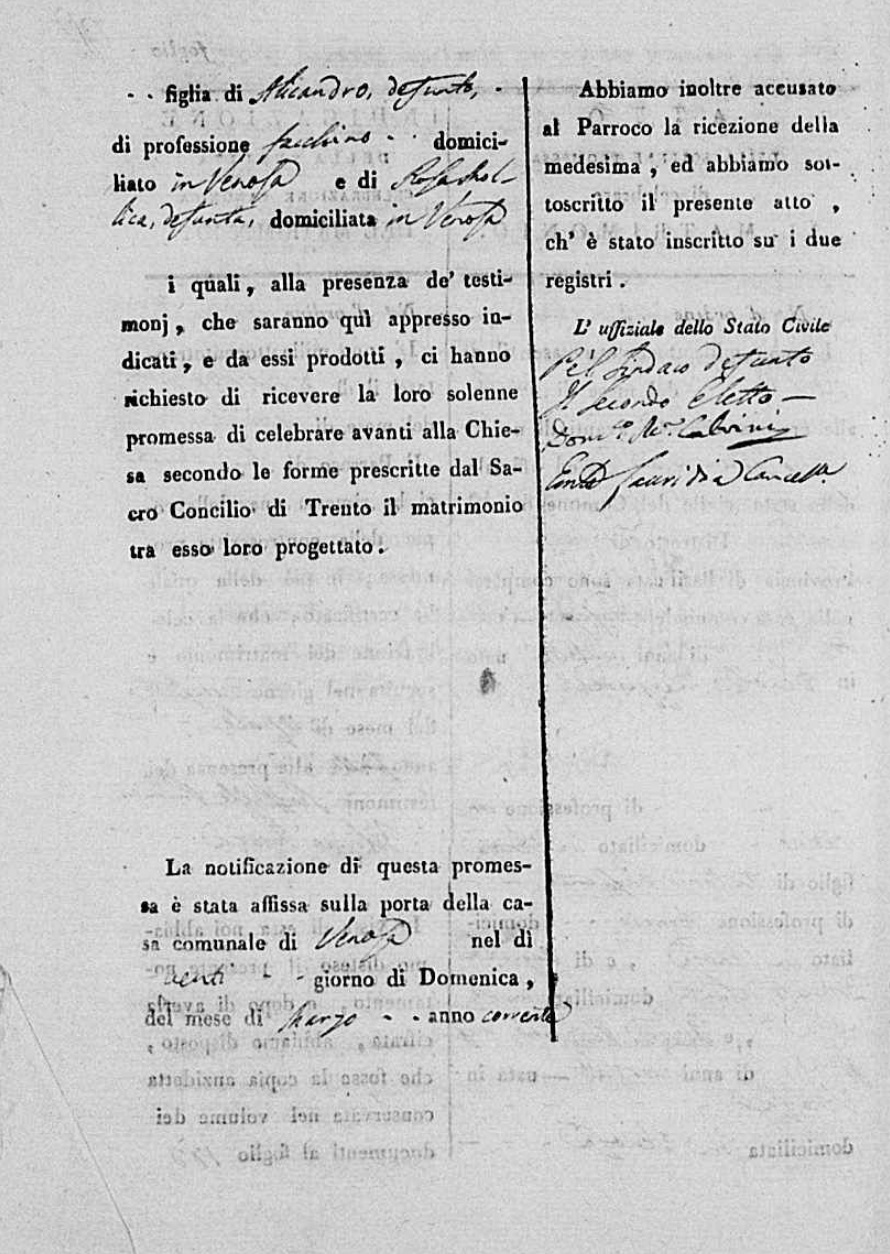 figlia di Alicandro, defunto,
di professione facchino domici-
liato in Venosa e di Rosa
defunta, domiciliata in Venosa
i quali, alla presenza de' testi-
monj, che saranno quì appresso in-
dicati, e da essi prodotti, ci hanno
richiesto di ricevere la loro solenne
promessa di celebrare avanti alla Chie-
sa secondo le forme prescritte dal Sa-
cro Concilio di Trento il matrimonio
tra esso loro progettato.
La notificazione di questa promes-
sa è stata affissa sulla porta della ca-
sa comunale di Venosa nel dì
venti giorno di Domenica,
del mese di Marzo anno corrente
Abbiamo inoltre accusato
al Parroco la ricezione della
medesima, ed abbiamo sot-
toscritto il presente atto,
ch' è stato inscritto su i due
registri.
L' uffiziale dello Stato Civile
Pel Sindaco defunto
Il Secondo Eletto
Dom.co M.a Calvini